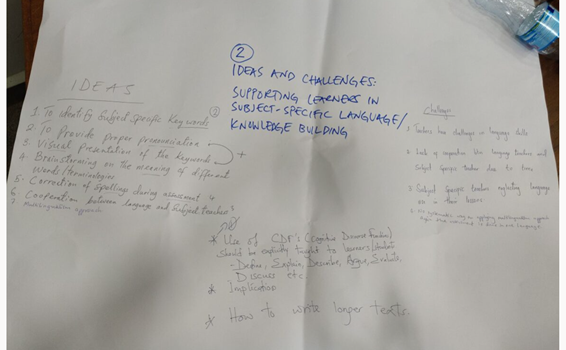 2
IDEAS AND CHALLENGES:
SUPPORTING LEARNERS IN
SUBJECT-SPECIFIC LANGUAGE/
KNOWLEDGE BUILDING
IDEAS
1. To identify Subject Specific Keywords
2. To Provide proper pronunciation
3. Visual Presentation of the Keywords
+
4. Brainstorming on the meaning of different
words/terminologies
5. Correction of Spellings during assessment
6 Cooperation between language and Subject teachers
7
* Use of CDF's (Cognitive Discourse Function)
Should be explicitly taught to learners/
- Define, Explain, Describe, Argue, Evaluate,
Discuss etc.
* Implication
* How to write longer texts.
Challenges
1. Teachers has challenges in language skills
2. Lack of cooperation btn language teachers and
Subject Specific teachers due to
3. Subject Specific teachers neglecting language
use in their lessons